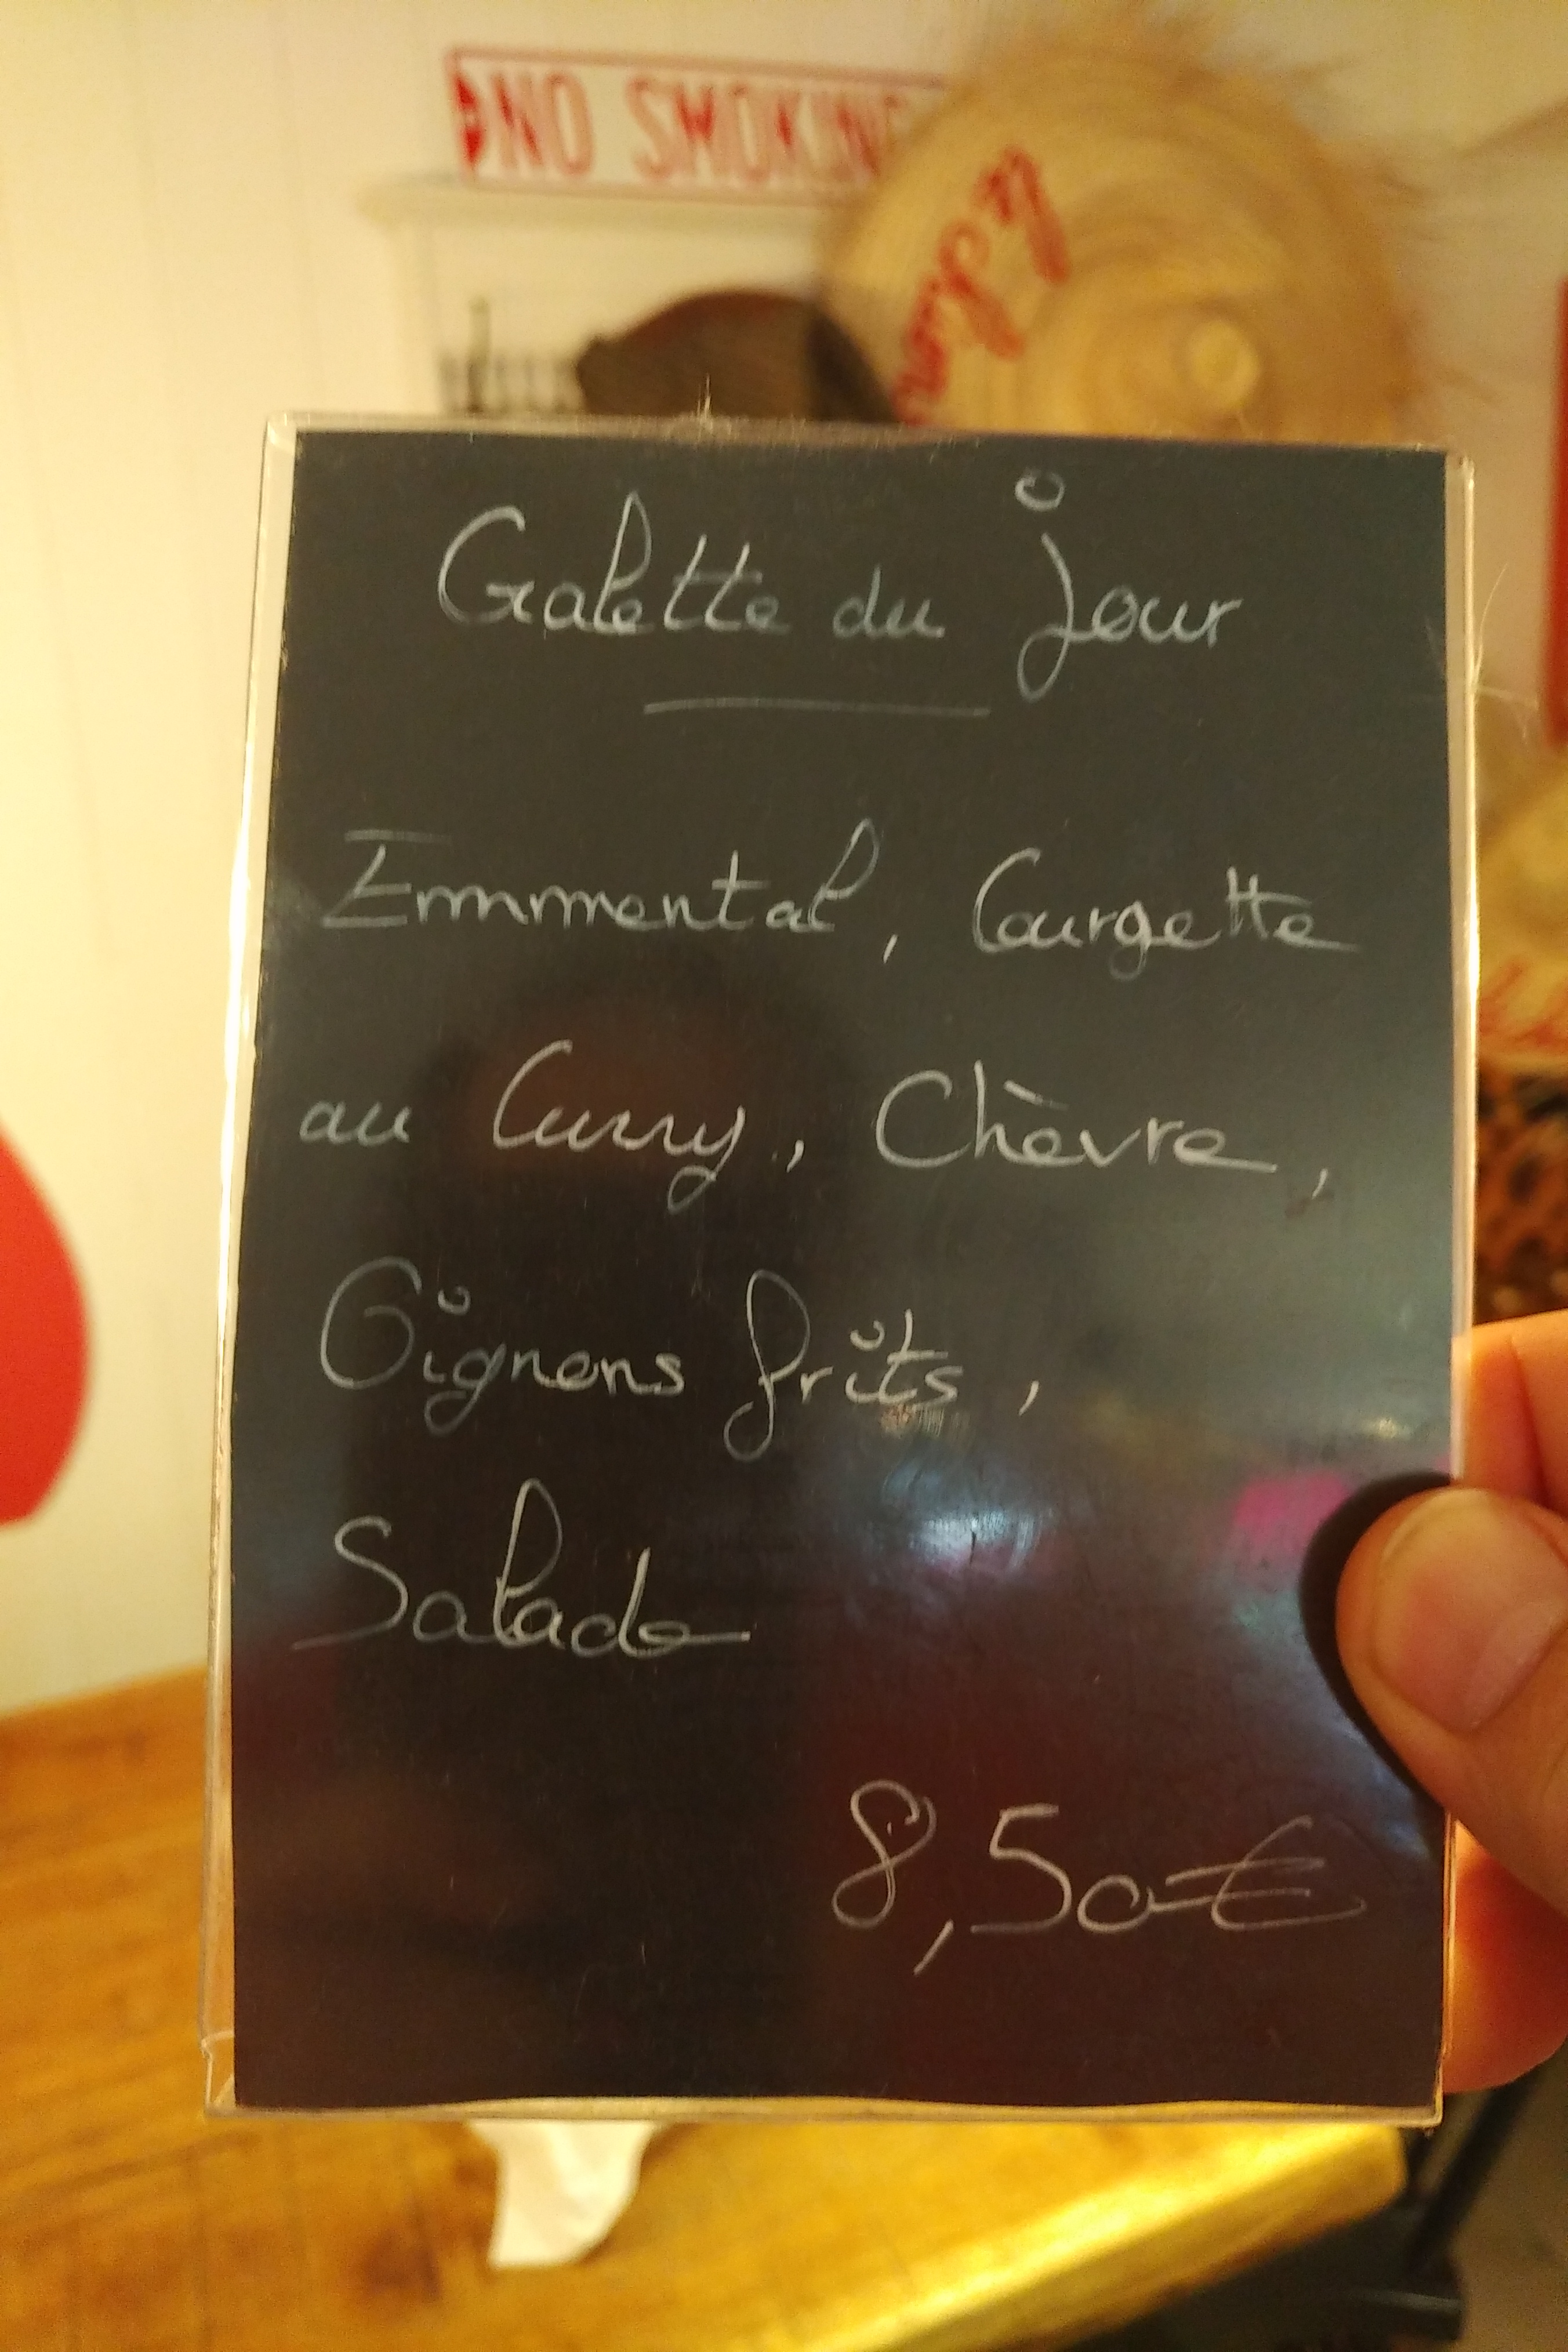 NO SMOKING
Galette du jour
Emmental, Courgette
au Curry, Chèvre,
Oignons frits,
Salade
8,50€